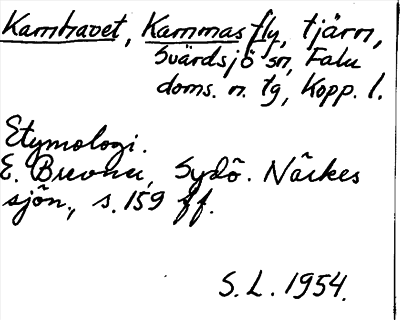 Kamhavet, Kammas fly, tjärn,
Svärdsjö sn, Falu
doms. n. tg, Kopp. l.
Etymologi.
E. Brevner, Sydö. Närkes
sjön., s. 159 ff.
S.L. 1954.